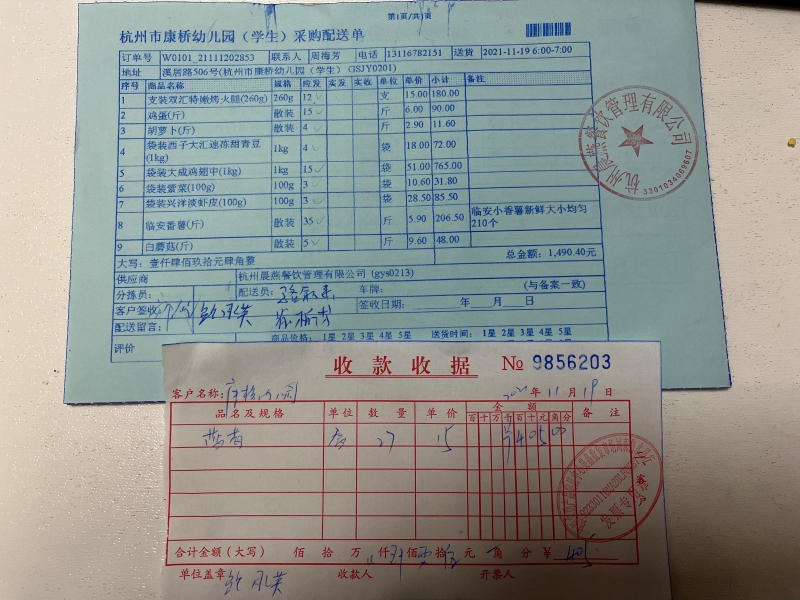 第1页/共1页
杭州市康桥幼儿园（学生）采购配送单
订单号 W0101_21111202853 联系人 周梅芳 电话 13116782151 送货 2021-11-19 6:00-7:00
地址 溪居路506号(杭州市康桥幼儿园（学生） GSJY0201)
序号 商品名称 规格 应发 实发 实收 单位 单价 小计 备注
1 支装双汇特嫩烤火腿(260g) 260g 12 支 15.00 180.00
2 鸡蛋(斤) 散装 15 斤 6.00 90.00
3 胡萝卜(斤) 散装 4 斤 2.90 11.60
4 袋装西子大汇速冻甜青豆(1kg) 1kg 4 袋 18.00 72.00
5 袋装大成鸡翅中(1kg) 1kg 15 袋 51.00 765.00
6 袋装紫菜(100g) 100g 3 袋 10.60 31.80
7 袋装兴洋淡虾皮(100g) 100g 3 袋 28.50 85.50
8 临安番薯(斤) 散装 35 斤 5.90 206.50 临安小香薯新鲜大小均匀210个
9 白蘑菇(斤) 散装 5 斤 9.60 48.00
大写：壹仟肆佰玖拾元肆角整 总金额：1,490.40元
供应商 杭州晨燕餐饮管理有限公司 (gys0213)
分拣员： 配送员： 车牌： (与备案一致)
客户签收： 签收日期： 年 月 日
配送留言：
评价 商品价格： 1星 2星 3星 4星 5星 送货时间： 1星 2星 3星 4星 5星
杭州晨燕餐饮管理有限公司
3301034069607
收款收据 № 9856203
客户名称：康桥幼儿园 2021年11月19日
品名及规格 单位 数量 单价 金额 备注
百十万千百十元角分
27 15 ¥40500
客户
发票专用章
合计金额（大写） 佰 拾 万 仟 肆佰零拾 元 角 分 ¥ 405
单位盖章 收款人 开票人